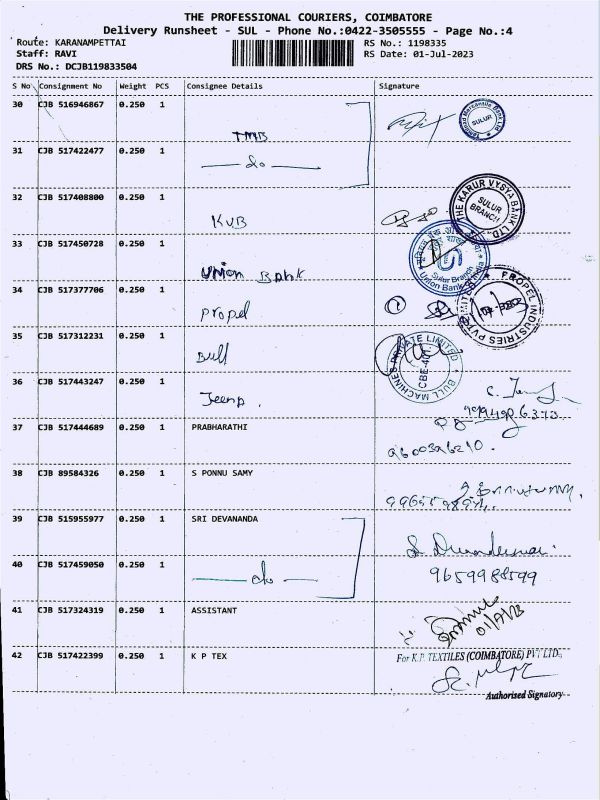 THE PROFESSIONAL COURIERS, COIMBATORE
Delivery Runsheet - SUL - Phone No.:0422-3505555 - Page No.:4
Route: KARANAMPETTAI RS No.: 1198335
Staff: RAVI RS Date: 01-Jul-2023
DRS No.: DCJB119833504
S No Consignment No Weight PCS Consignee Details Signature
30 CJB 516946867 0.250 1
TMB
Tamilnad Mercantile Bank Ltd SULUR
31 CJB 517422477 0.250 1
do
32 CJB 517408800 0.250 1
KVB
THE KARUR VYSYA BANK LTD. SULUR BRANCH
33 CJB 517450728 0.250 1
Union Bank
Sulur Branch Union Bank of India
34 CJB 517377706 0.250 1
Propel
PROPEL INDUSTRIES PVT LIMITED
35 CJB 517312231 0.250 1
Bull
BULL MACHINES PRIVATE LIMITED CBE-401
36 CJB 517443247 0.250 1
Jeenp.
37 CJB 517444689 0.250 1 PRABHARATHI
9600396210.
38 CJB 89584326 0.250 1 S PONNU SAMY
39 CJB 515955977 0.250 1 SRI DEVANANDA
40 CJB 517459050 0.250 1
do
9659988599
41 CJB 517324319 0.250 1 ASSISTANT
01/7/23
42 CJB 517422399 0.250 1 K P TEX
For K.P. TEXTILES (COIMBATORE) PVT LTD.,
Authorised Signatory